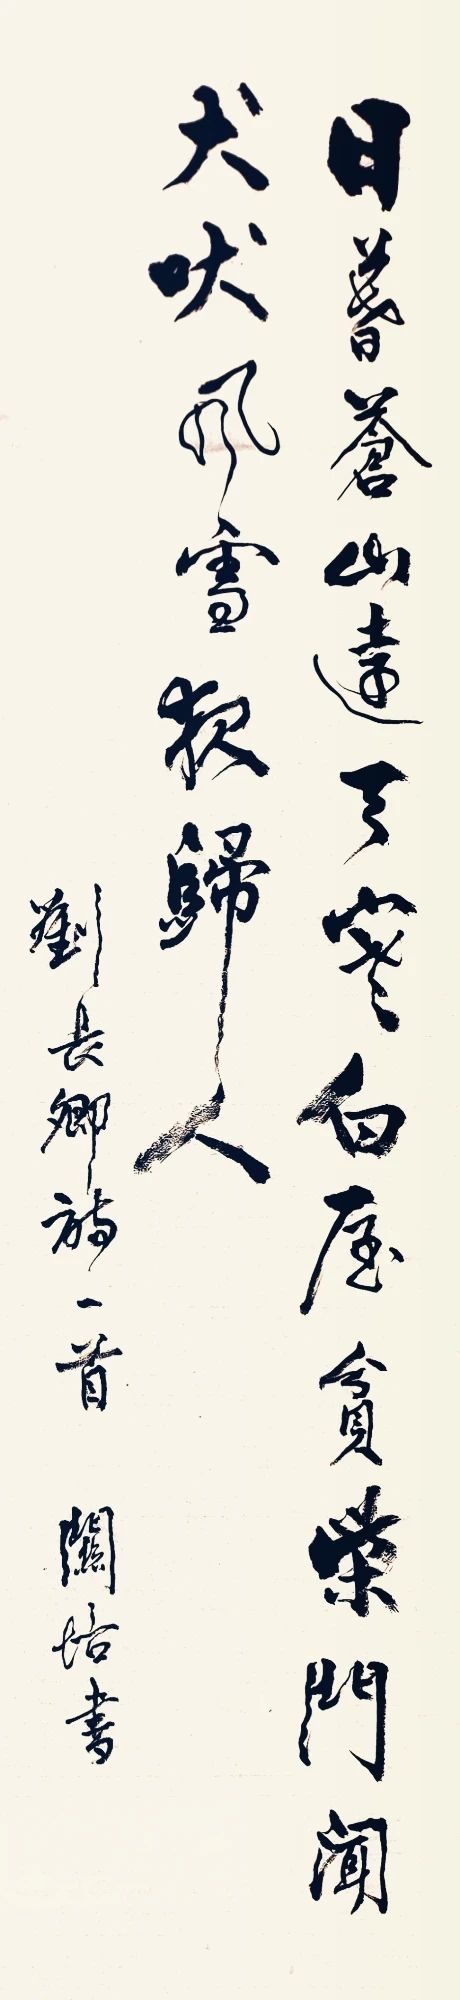 日暮蒼山遠天寒白屋貧柴門聞
犬吠風雪夜歸人
劉長卿詩一首 關培書